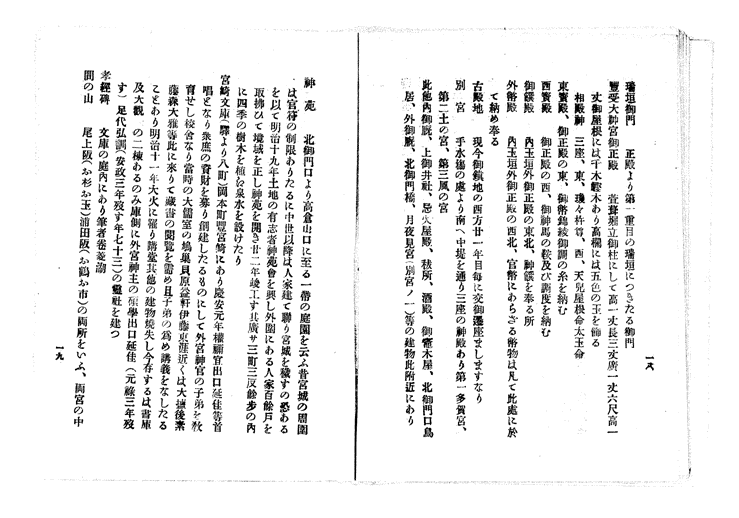 瑞垣御門　正殿より第一重目の瑞垣につきたる御門
豐受大神宮御正殿　萱葺掘立御柱にして高一丈長三丈廣一丈六尺高一
丈御屋根には千木鰹木あり高欄には五色の玉を飾る
相殿神　三座、東、瓊々杵尊、西、天兒屋根命太玉命
東寶殿、御正殿の東、御幣錦綾御調の糸を納む
西寶殿　御正殿の西、御神馬の鞍及び調度を納む
御饌殿　内玉垣外御正殿の東北、神饌を奉る所
外幣殿　内玉垣外御正殿の西北、官幣にあらざる幣物は凡て此處に於
て納め奉る
古殿地　現今御鎭地の西方廿一年目每に交御遷座ましますなり
別宮　手水塲の處より南へ中堤を通り三座の神殿あり第一多賀宮、
第二土の宮、第三風の宮
此他內御廐、上御井社、忌火屋殿、祓所、酒殿、御竈木屋、北御門口鳥
居、外御廐、北御門橋、月夜見宮(別宮ノ一)等の建物此附近にあり
一八
神苑　北御門口より高倉出口に至る一帶の庭園を云ふ昔宮城の周圍
は官符の制限ありたるに中世以降は人家建て聯り宮城を穢すの恐ある
を以て明治十九年土地の有志者神苑會を興し外圍にある人家百餘戶を
取拂ひて境域を正し神苑を開き廿二年竣工す其廣サ三町三反餘步の內
に四季の樹木を植ゑ泉水を設けたり
宮崎文庫(驛より八町)岡本町豐宮崎にあり慶安元年權禰宜出口延佳等首
唱となり衆庶の資財を募り創建したるものにして外宮神官の子弟を敎
育せし校舍なり當時の大儒室の鳩巢貝原益軒伊藤東涯近くは大鹽後素
藤森大雅等此に來りて藏書の閱覽を需め且子弟の爲め講義をなしたる
ことあり明治十一年大火に罹り講堂其他の建物燒失し今存するは書庫
及大觀　の二棟あるのみ庫側に外宮神主の碩學出口延佳(元祿三年歿
す)足代弘訓(安政三年歿す年七十三)の靈社を建つ
孝經碑　文庫の庭內にあり筆者卷菱湖
間の山　尾上阪(お杉お玉)浦田阪(お鶴お市)の兩所をいふ、兩宮の中
一九